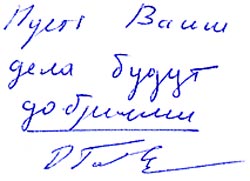 Пусть Ваши
дела будут
добрыми